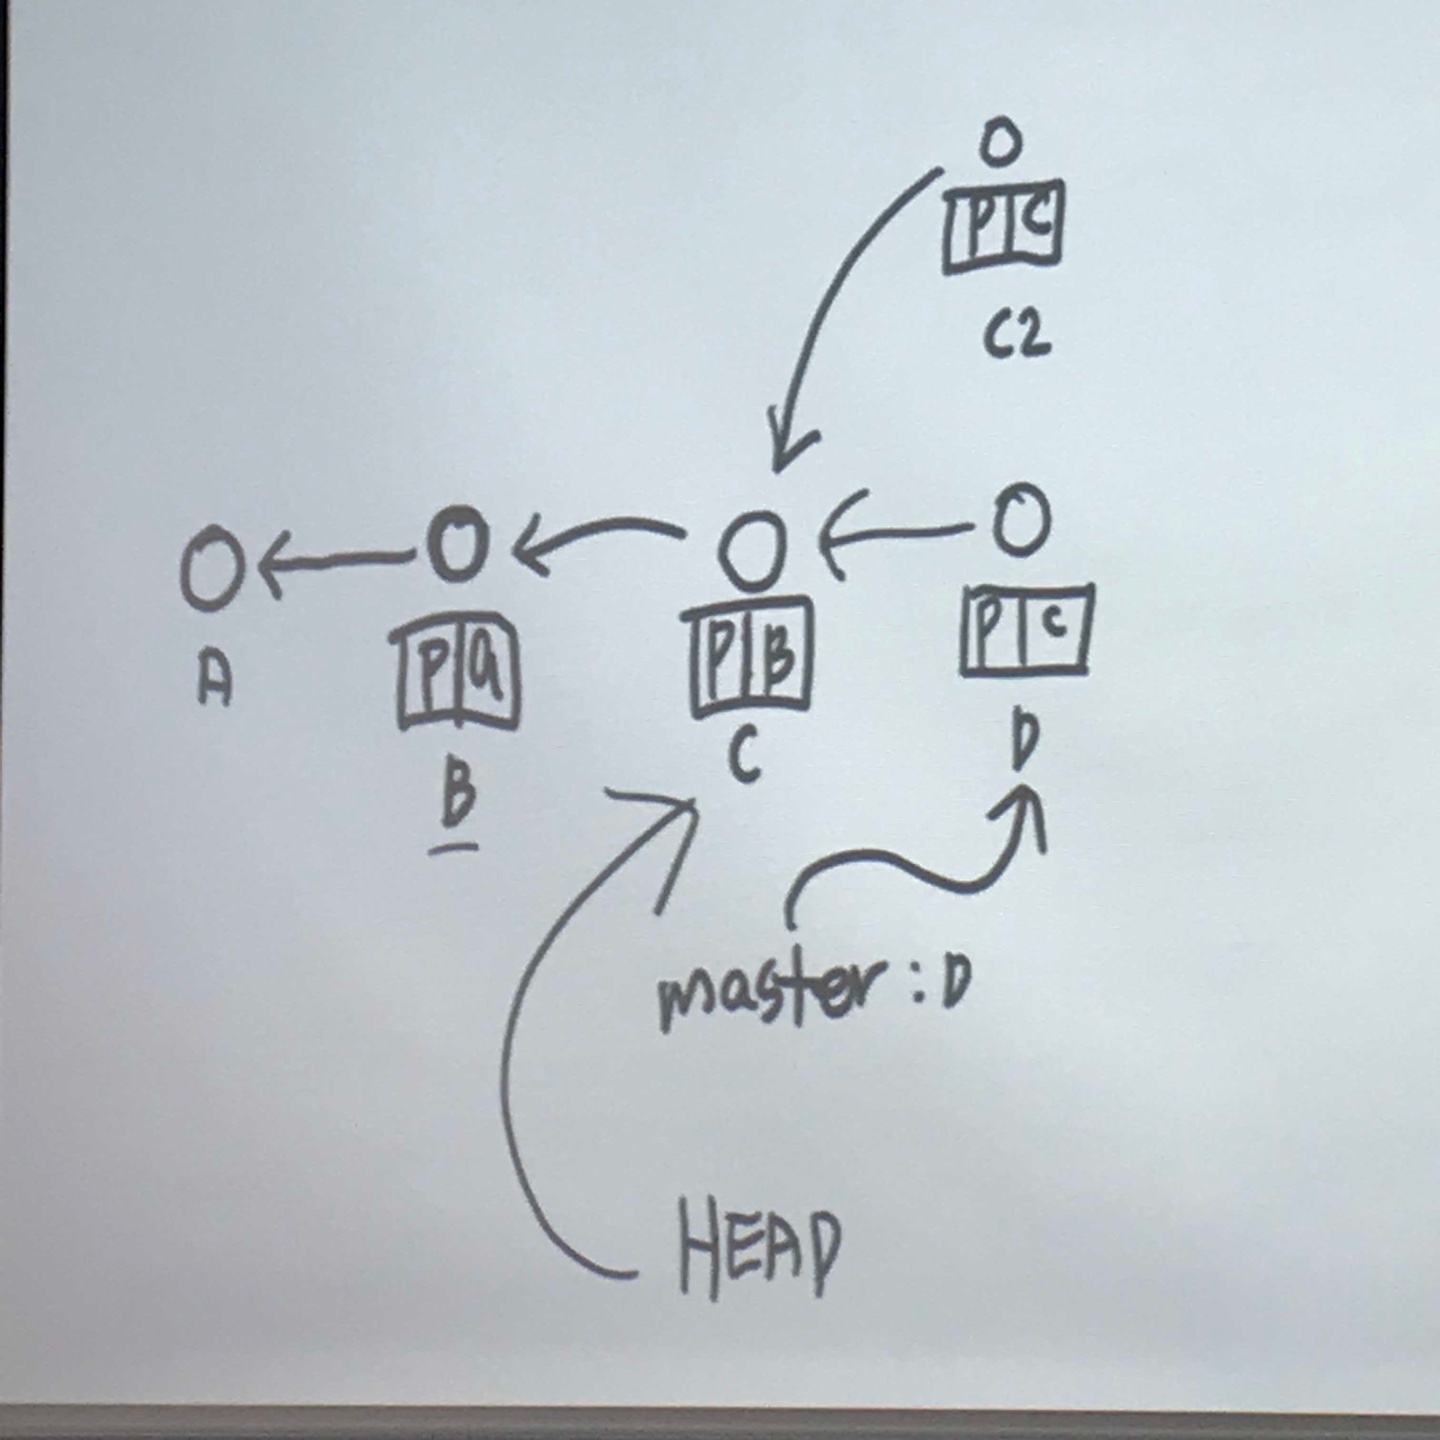 P C
C2
P a
P B
P C
A
B
C
D
master : D
HEAD